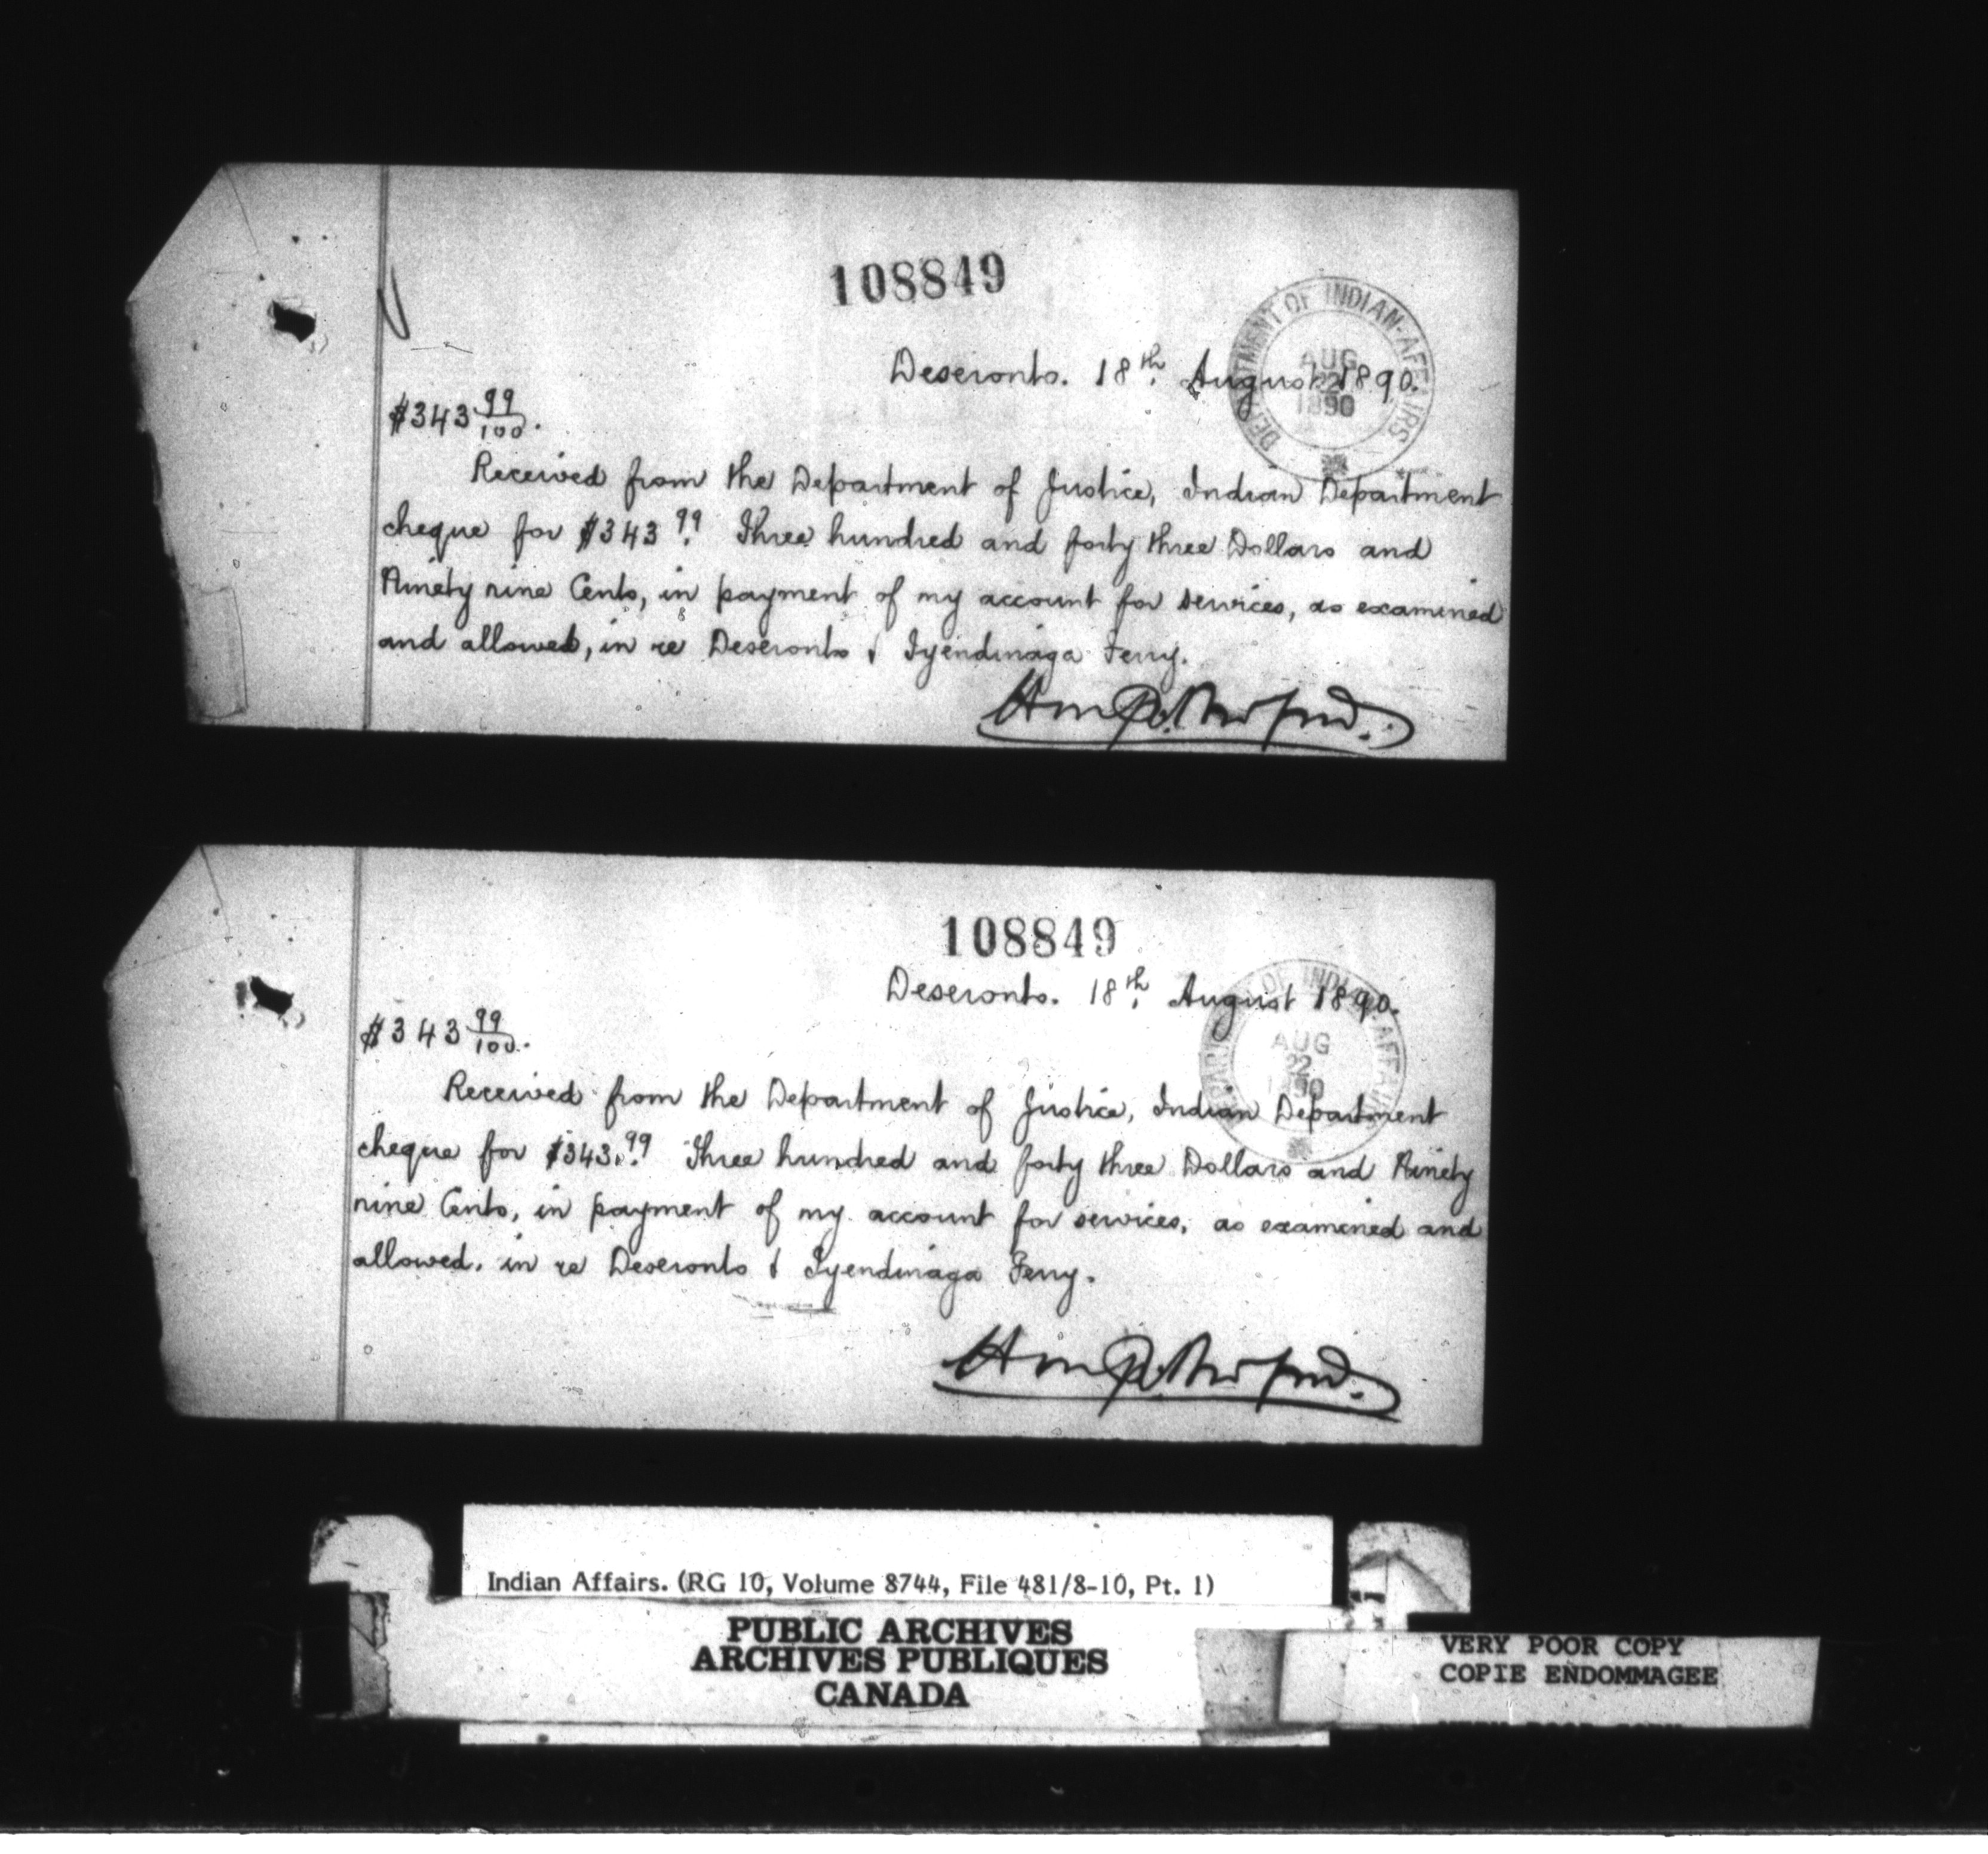 108849
DEPARTMENT OF INDIAN-AFFAIRS
AUG
22
1890
Deseronto. 18th. August 1890.
$343 99/100.
Received from the Department of Justice, Indian Department
cheque for $343.99 Three hundred and forty three Dollars and
Ninety nine Cents, in payment of my account for services, as examined
and allowed, in re Deseronto & Tyendinaga Ferry.
108849
Deseronto. 18th. August 1890.
DEPARTMENT OF INDIAN-AFFAIRS
AUG
22
1890
$343 99/100.
Received from the Department of Justice, Indian Department
cheque for $343.99 Three hundred and forty three Dollars and Ninety
nine Cents, in payment of my account for services, as examined and
allowed, in re Deseronto & Tyendinaga Ferry.
Indian Affairs. (RG 10, Volume 8744, File 481/8-10, Pt. 1)
PUBLIC ARCHIVES
ARCHIVES PUBLIQUES
CANADA
VERY POOR COPY
COPIE ENDOMMAGEE